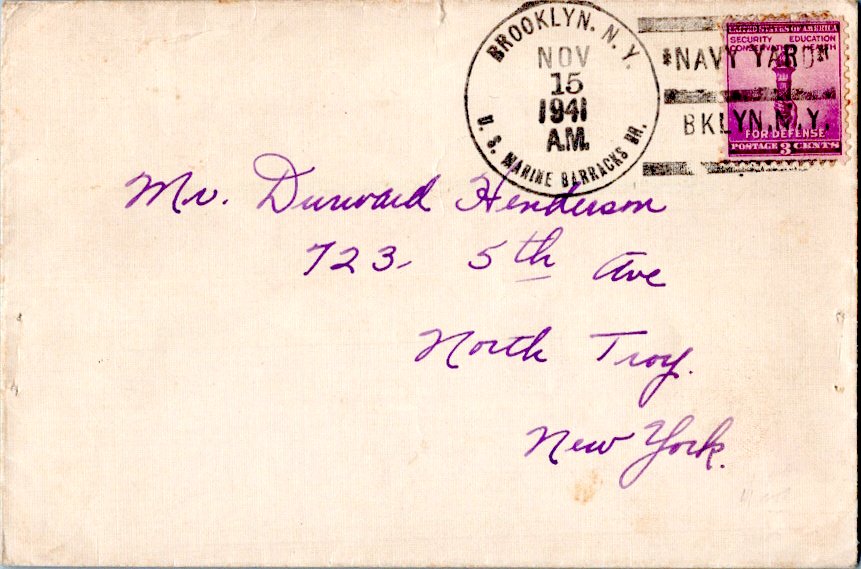 BROOKLYN. N. Y.
NOV
15
1941
A.M.
U. S. MARINE BARRACKS BR.
"NAVY YARD"
BKLYN, N.Y.
UNITED STATES OF AMERICA
SECURITY EDUCATION
CONSERVATION HEALTH
FOR DEFENSE
POSTAGE 3 CENTS
Mr. Durward Henderson
723- 5th Ave
North Troy.
New York.